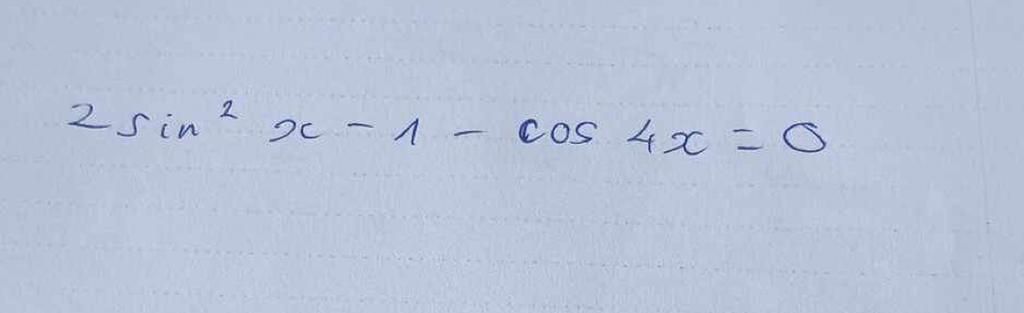 2 sin² x - 1 - cos 4x = 0